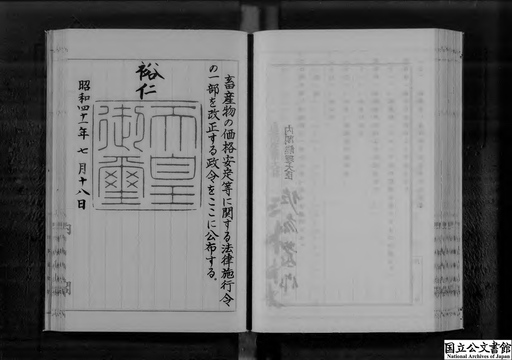 畜産物の価格安定等に関する法律施行令
の一部を改正する政令をここに公布する。
裕仁
天皇
御璽
昭和四十一年七月十八日
内閣
内閣総理大臣
国立公文書館
National Archives of Japan